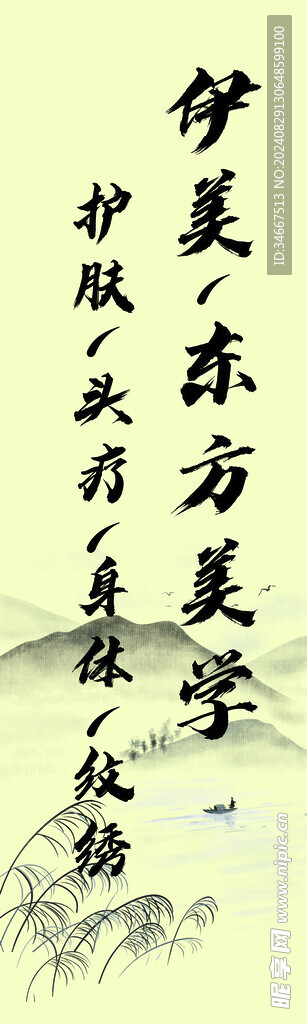 伊美/东方美学
护肤/头疗/身体/纹绣
ID:34667513 NO:20240829130648599100
昵享网 www.nipic.cn